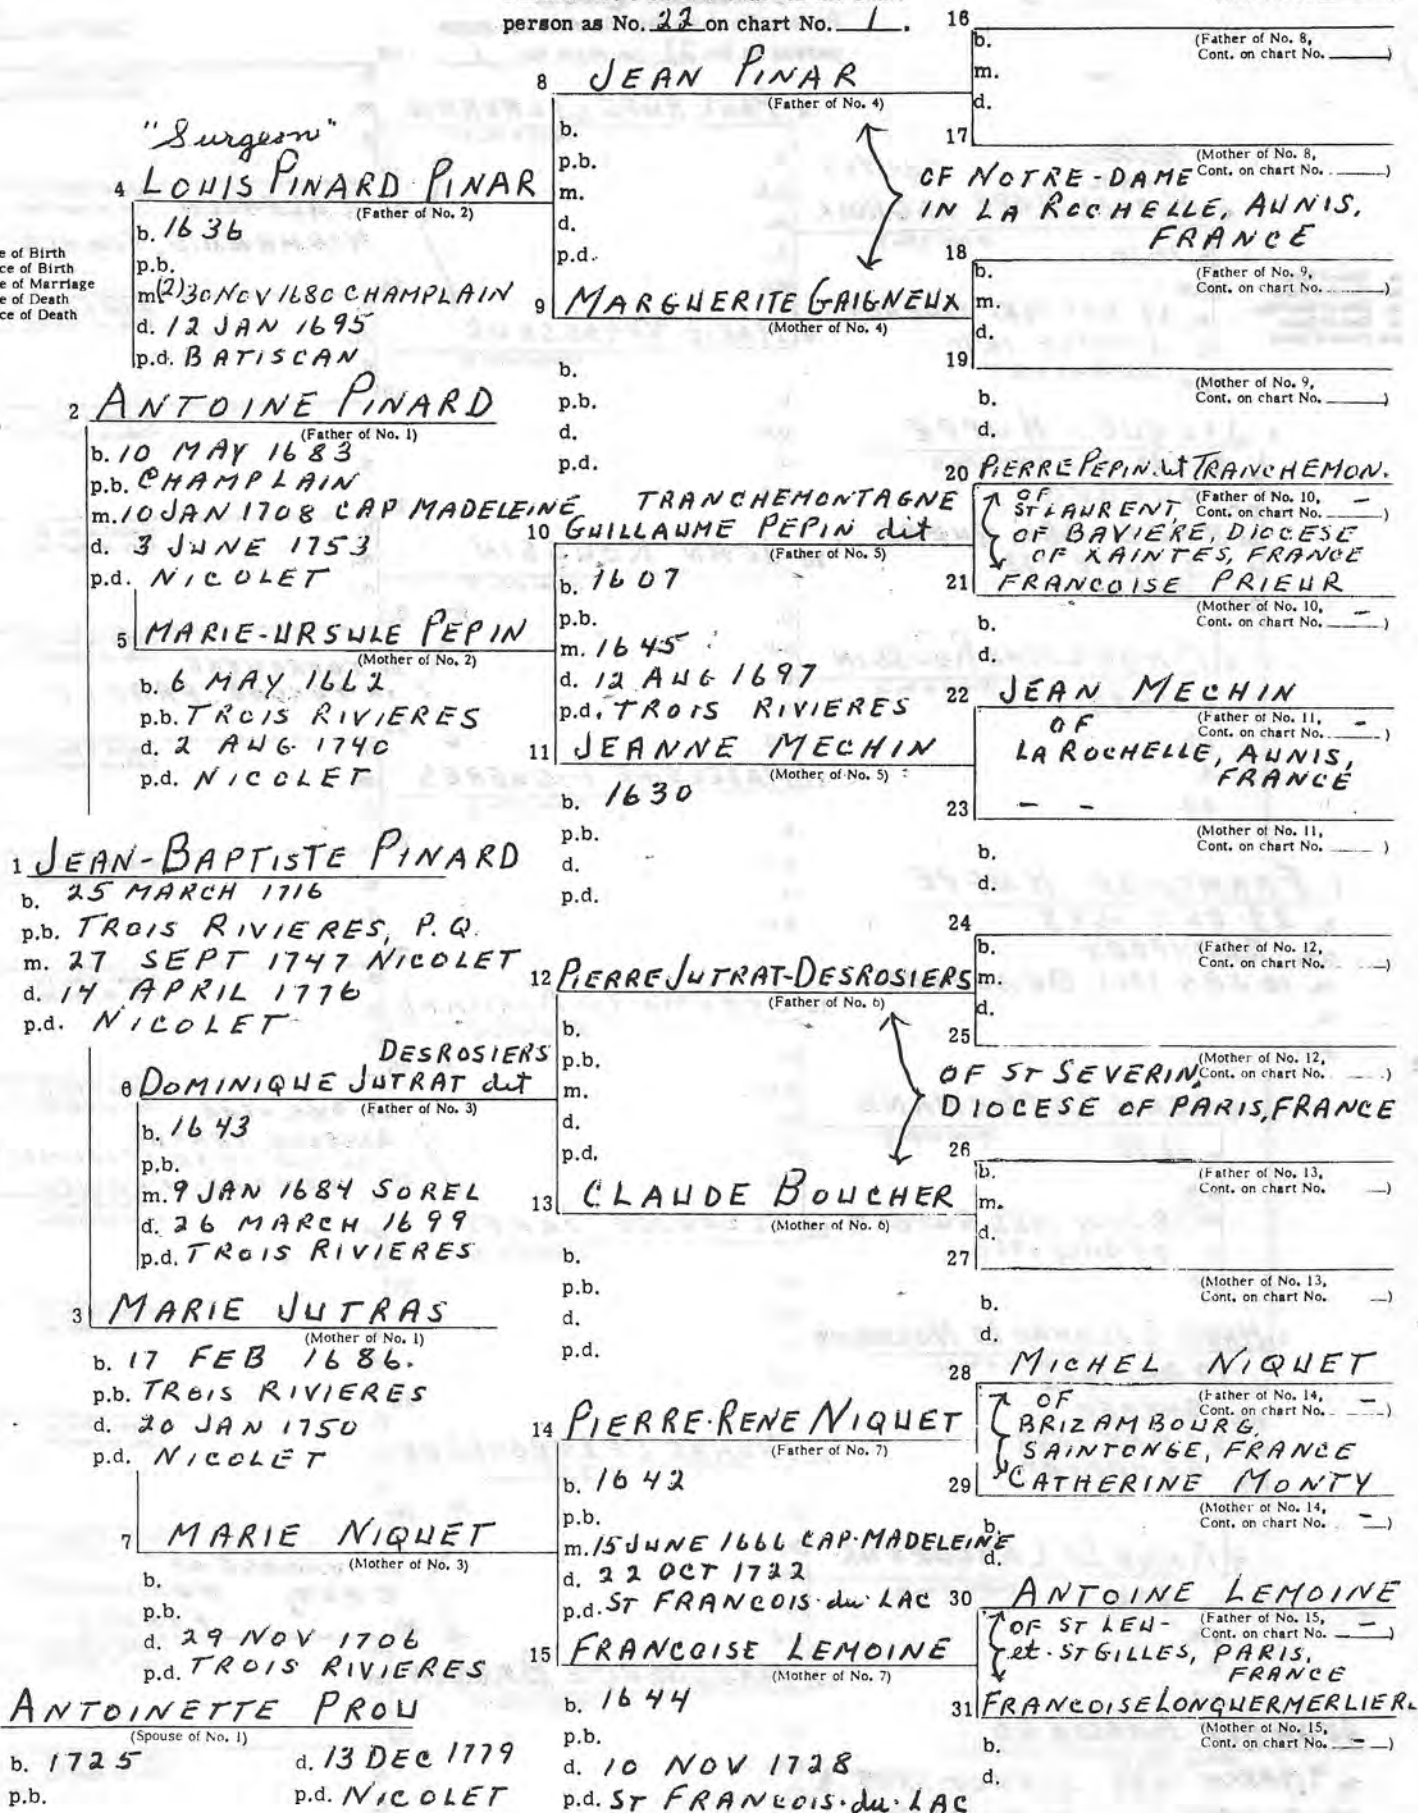 person as No. 22 on chart No. 1.
e of Birth
ce of Birth
e of Marriage
e of Death
ce of Death
1 JEAN-BAPTISTE PINARD
b. 25 MARCH 1716
p.b. TROIS RIVIERES, P.Q.
m. 27 SEPT 1747 NICOLET
d. 14 APRIL 1776
p.d. NICOLET
ANTOINETTE PROU
(Spouse of No. 1)
b. 1725 d. 13 DEC 1779
p.b. p.d. NICOLET
2 ANTOINE PINARD
(Father of No. 1)
b. 10 MAY 1683
p.b. CHAMPLAIN
m. 10 JAN 1708 CAP MADELEINE
d. 3 JUNE 1753
p.d. NICOLET
3 MARIE JUTRAS
(Mother of No. 1)
b. 17 FEB 1686.
p.b. TROIS RIVIERES
d. 20 JAN 1750
p.d. NICOLET
"Surgeon"
4 LOUIS PINARD PINAR
(Father of No. 2)
b. 1636
p.b.
m.(2) 30 NOV 1680 CHAMPLAIN
d. 12 JAN 1695
p.d. BATISCAN
5 MARIE-URSULE PEPIN
(Mother of No. 2)
b. 6 MAY 1662
p.b. TROIS RIVIERES
d. 2 AUG 1740
p.d. NICOLET
DESROSIERS
6 DOMINIQUE JUTRAT dit
(Father of No. 3)
b. 1643
p.b.
m. 9 JAN 1684 SOREL
d. 26 MARCH 1699
p.d. TROIS RIVIERES
7 MARIE NIQUET
(Mother of No. 3)
b.
p.b.
d. 29 NOV 1706
p.d. TROIS RIVIERES
8 JEAN PINAR
(Father of No. 4)
b.
p.b.
m.
d.
p.d.
OF NOTRE-DAME
IN LA ROCHELLE, AUNIS,
FRANCE
9 MARGUERITE GAIGNEUX
(Mother of No. 4)
b.
p.b.
d.
p.d.
TRANCHEMONTAGNE
10 GUILLAUME PEPIN dit
(Father of No. 5)
b. 1607
p.b.
m. 1645
d. 12 AUG 1697
p.d. TROIS RIVIERES
11 JEANNE MECHIN
(Mother of No. 5)
b. 1630
p.b.
d.
p.d.
12 PIERRE JUTRAT-DESROSIERS
(Father of No. 6)
b.
p.b.
m.
d.
p.d.
OF ST SEVERIN,
DIOCESE OF PARIS, FRANCE
13 CLAUDE BOUCHER
(Mother of No. 6)
b.
p.b.
d.
p.d.
14 PIERRE-RENE NIQUET
(Father of No. 7)
b. 1642
p.b.
m. 15 JUNE 1666 CAP-MADELEINE
d. 22 OCT 1722
p.d. ST FRANCOIS-du-LAC
15 FRANCOISE LEMOINE
(Mother of No. 7)
b. 1644
p.b.
d. 10 NOV 1728
p.d. ST FRANCOIS-du-LAC
16
b. (Father of No. 8,
m. Cont. on chart No. )
d.
17
(Mother of No. 8,
Cont. on chart No. )
18
b. (Father of No. 9,
m. Cont. on chart No. )
d.
19
(Mother of No. 9,
b. Cont. on chart No. )
d.
20 PIERRE PEPIN dit TRANCHEMON.
(Father of No. 10,
Cont. on chart No. - )
OF
ST LAURENT,
OF BAVIERE, DIOCESE
OF XAINTES, FRANCE
21 FRANCOISE PRIEUR
(Mother of No. 10,
b. Cont. on chart No. - )
d.
22 JEAN MECHIN
(Father of No. 11,
Cont. on chart No. - )
OF
LA ROCHELLE, AUNIS,
FRANCE
23 - -
(Mother of No. 11,
b. Cont. on chart No. )
d.
24
b. (Father of No. 12,
m. Cont. on chart No. )
d.
25
(Mother of No. 12,
Cont. on chart No. )
26
b. (Father of No. 13,
m. Cont. on chart No. )
d.
27
(Mother of No. 13,
b. Cont. on chart No. )
d.
28 MICHEL NIQUET
(Father of No. 14,
Cont. on chart No. - )
OF
BRIZAMBOURG,
SAINTONGE, FRANCE
29 CATHERINE MONTY
(Mother of No. 14,
b. Cont. on chart No. - )
d.
30 ANTOINE LEMOINE
(Father of No. 15,
Cont. on chart No. - )
OF ST LEU-
et-ST GILLES, PARIS,
FRANCE
31 FRANCOISE LONQUERMERLIER
(Mother of No. 15,
b. Cont. on chart No. - )
d.